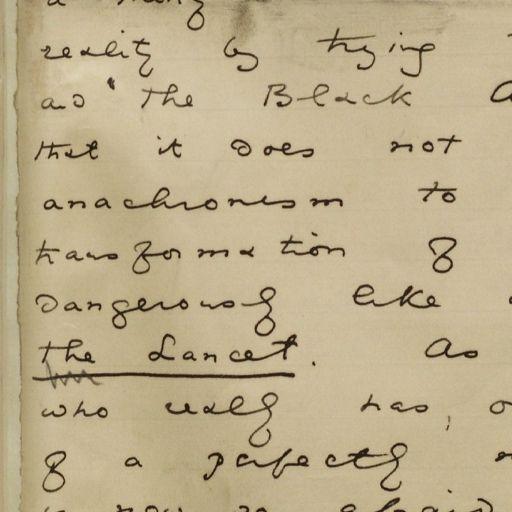 a
reality by trying
and "The Black
that it does not
anachronism to
transformation of
dangerously like
the Lancet. As
who really has,
of a perfectly